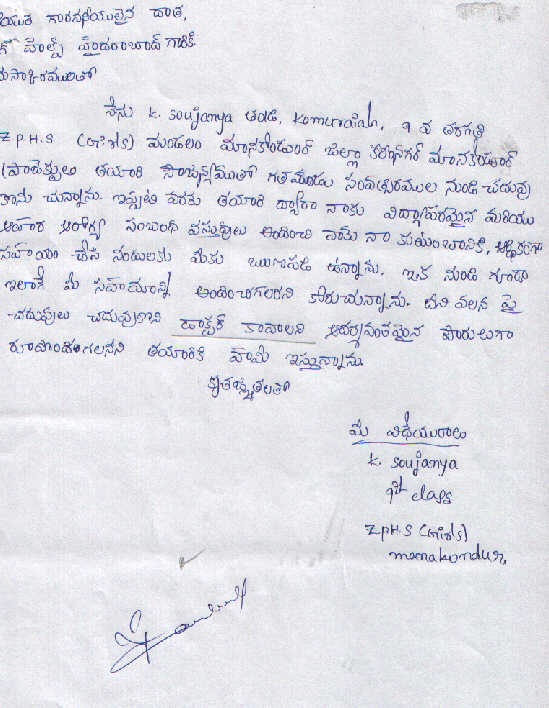 గౌరవనీయులైన దాత,
హైదరాబాద్ గారికి
నేను K. soujanya తండ్రి, Komuraiah, 9 వ తరగతి
Z.P.H.S (Girls) మండలం మానకొండూర్ జిల్లా కరీంనగర్ మానకొండూర్
తయారి సాయంతో గతమూడు సంవత్సరముల నుండి చదువు
చున్నాను. ఇప్పటి వరకు తయారి ద్వారా నాకు విద్యాపరమైన మరియు
ఆహార ఆరోగ్య సంబంధ వస్తువులు అందించి నాకు నా కుటుంబానికి, ఆర్థికంగా
సహాయం చేసి నందులకు మీకు ఋణపడి ఉన్నాను. ఇక నుండి కూడా
ఇలానే మీ సహాయాన్ని అందించగలరని కోరుచున్నాను. దీని వలన పై
చదువులు చదువుకొని డాక్టర్ కావాలని ఆదర్శవంతమైన పౌరులుగా
రూపొందగలనని తయారికి హామీ ఇస్తున్నాను.
కృతజ్ఞతలతో
మీ విధేయురాలు
K. soujanya
9th class
Z.P.H.S (Girls)
manakondur.